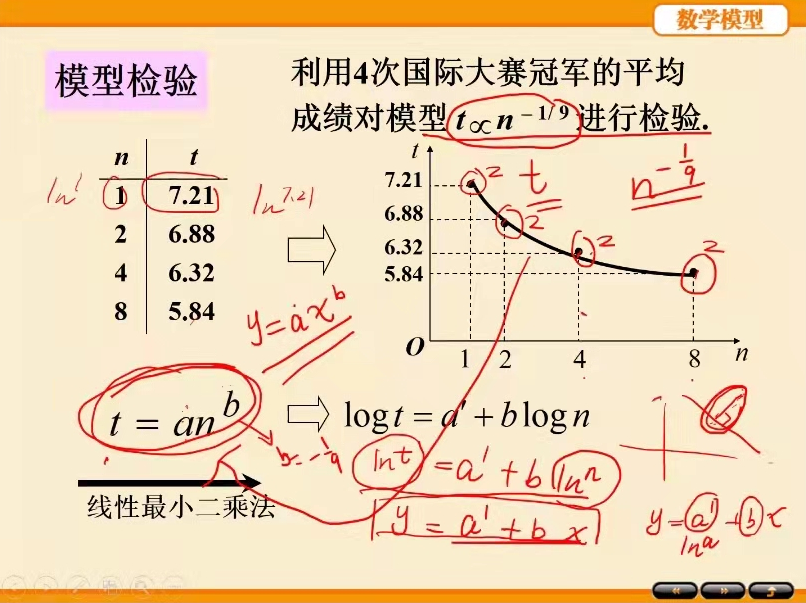 数学模型
模型检验
利用4次国际大赛冠军的平均
成绩对模型 t∝n⁻¹ᐟ⁹ 进行检验.
n t
1 7.21
2 6.88
4 6.32
8 5.84
ln¹
ln^7.21
t
7.21
6.88
6.32
5.84
O 1 2 4 8 n
2
2
2
2
t
n^-1/9
y=ax^b
t = an^b
b=-1/9
log t = a' + b log n
ln t = a' + b ln n
y = a' + b x
线性最小二乘法
y = a' + b x
ln a